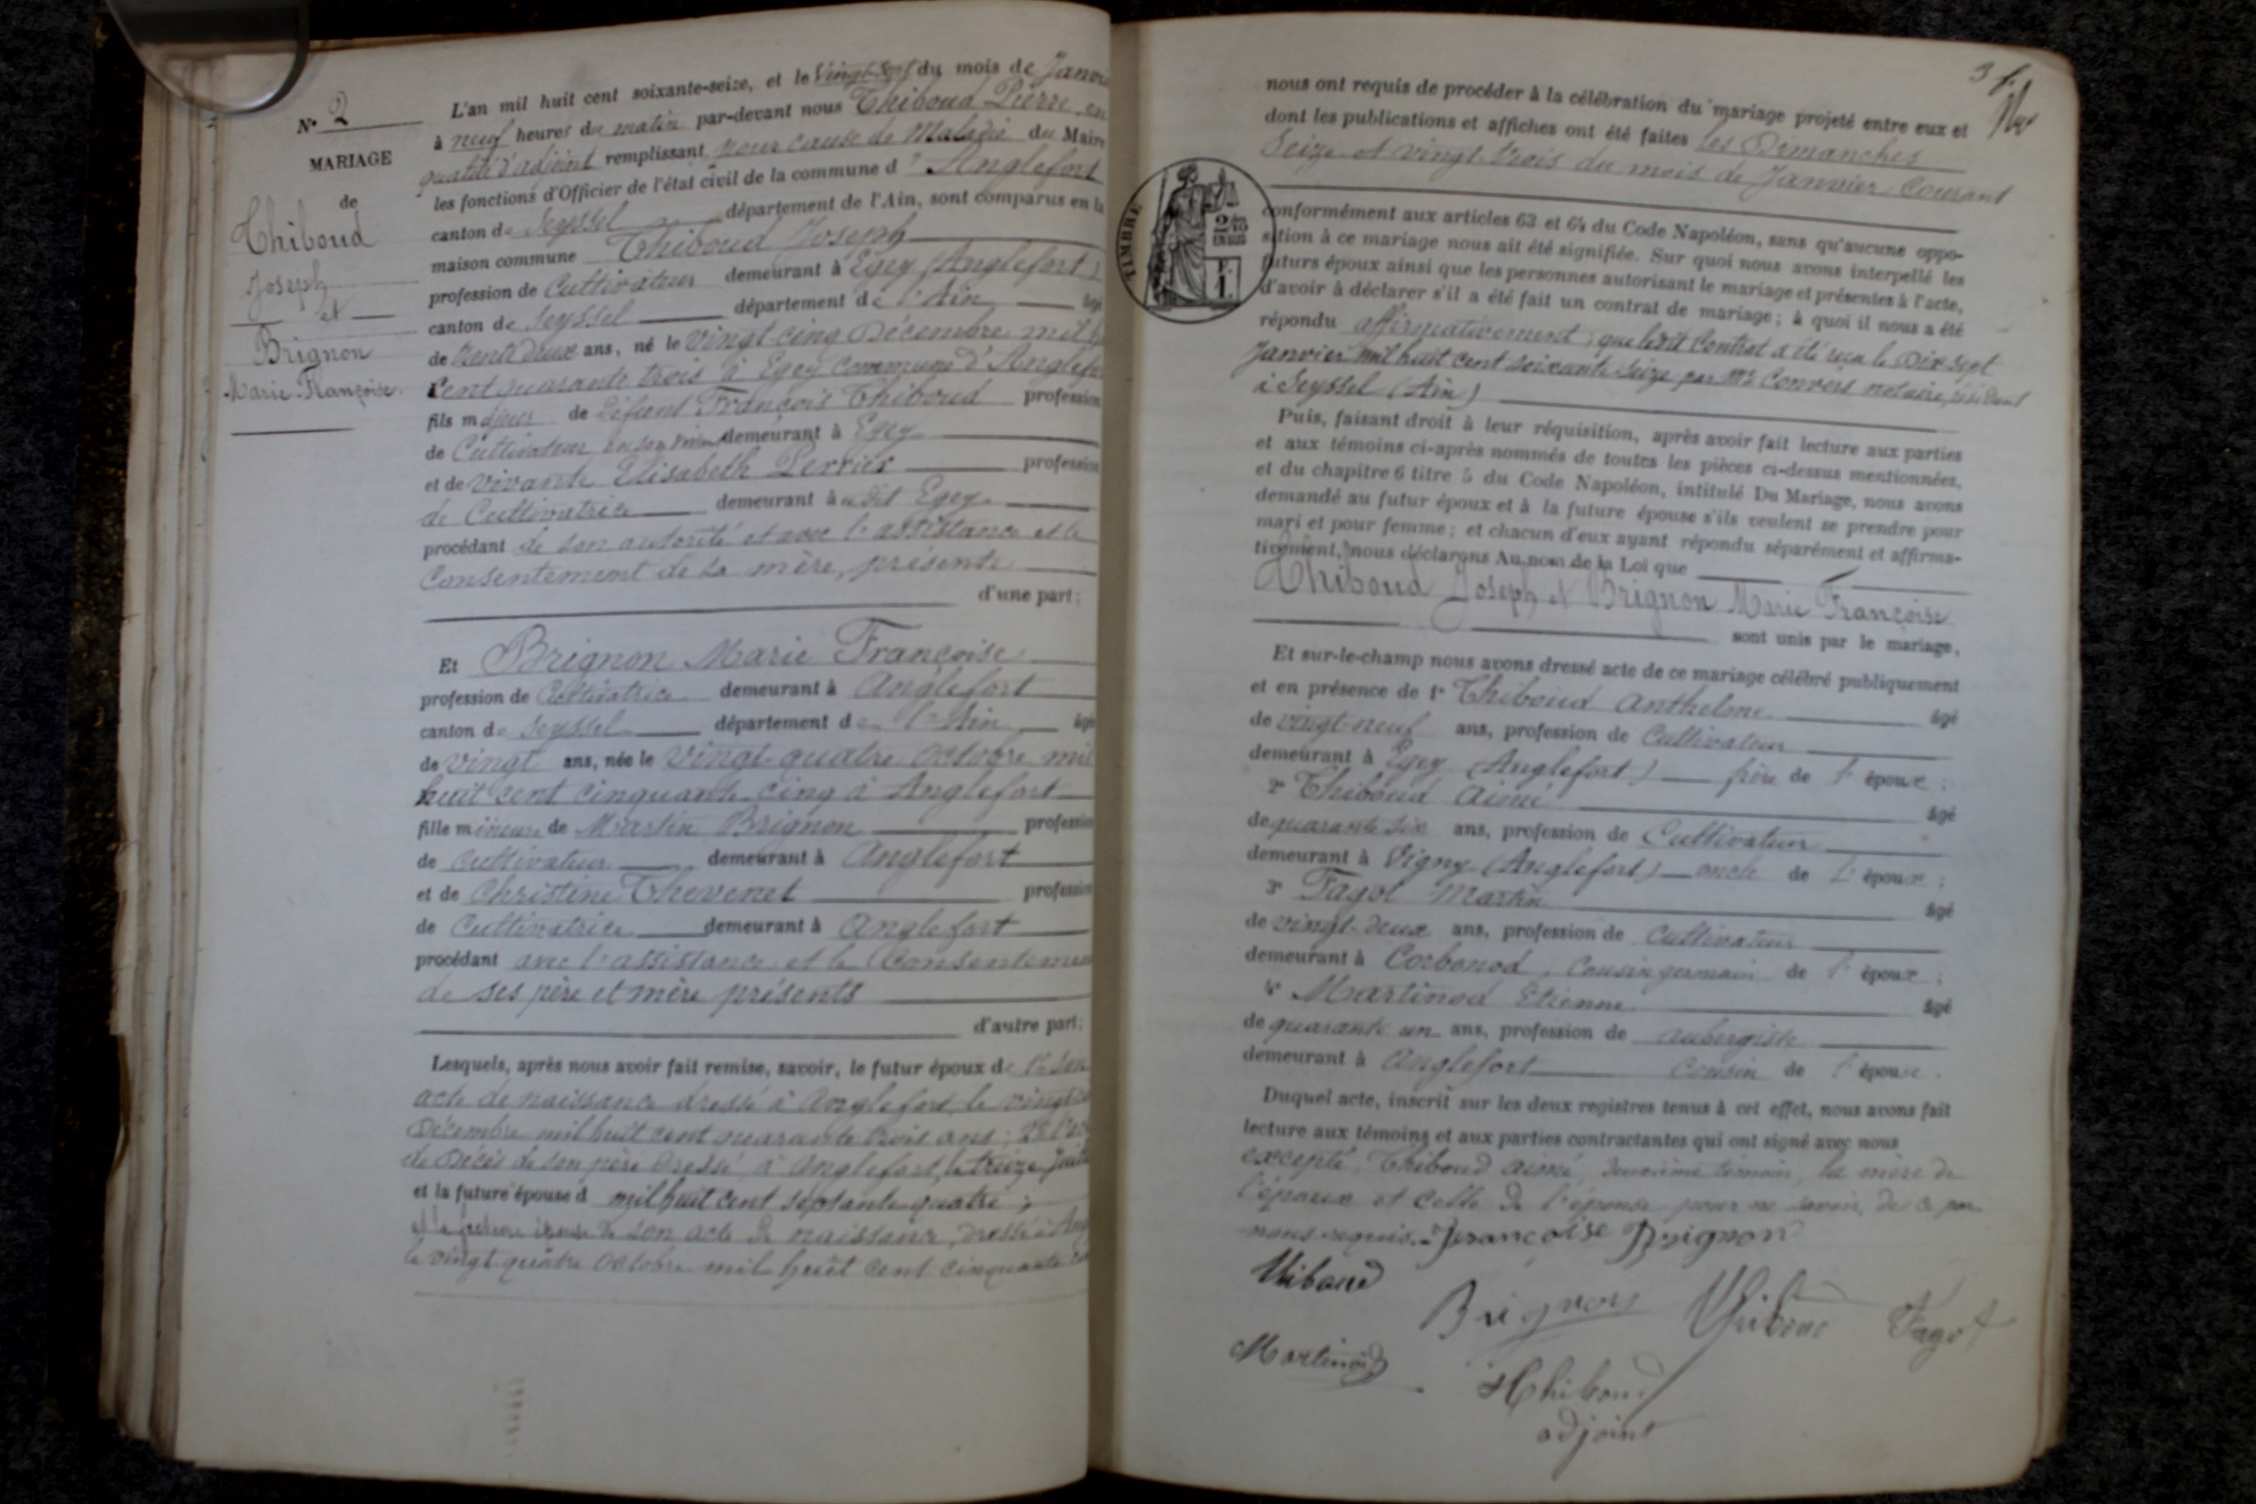 N° 2
MARIAGE
de
Thiboud
Joseph
et
Brignon
Marie-Françoise.
L'an mil huit cent soixante-seize, et le vingt-sept du mois de Janvi
à neuf heures du matin par-devant nous Thiboud Pierre en
qualité d'adjoint remplissant pour cause de Maladie du Maire
les fonctions d'Officier de l'état civil de la commune d'Anglefort
canton de Seyssel département de l'Ain, sont comparus en la
maison commune Thiboud Joseph
profession de Cultivateur demeurant à Egey (Anglefort)
canton de Seyssel département de l'Ain âgé
de trente deux ans, né le vingt cinq Décembre mil h
cent quarante trois à Egey commune d'Anglefo
fils majeur de défunt François Thiboud profession
de Cultivateur en son vivant demeurant à Egey
et de vivante Elisabeth Perrier profession
de Cultivatrice demeurant à udit Egey
procédant de son autorité et avec l'assistance et le
Consentement de sa mère, présente
d'une part;
Et Brignon Marie Françoise
profession de Cultivatrice demeurant à Anglefort
canton de Seyssel département de l'Ain âgé
de vingt ans, née le vingt-quatre octobre mil
huit cent cinquante cinq à Anglefort
fille mineure de Martin Brignon profession
de Cultivateur demeurant à Anglefort
et de Christine Thevenet profession
de Cultivatrice demeurant à Anglefort
procédant avec l'assistance et le Consentemen
de ses père et mère présents
d'autre part;
Lesquels, après nous avoir fait remise, savoir, le futur époux de 1° son
acte de naissance dressé à Anglefort le vingt
Décembre mil huit cent quarante trois ans; 2° l'ac
de Décès de son père dressé à Anglefort, le treize Juil
et la future épouse d mil huit cent septante quatre;
et la future épouse de son acte de naissance, dressé à Ang
le vingt quatre octobre mil huit cent cinquante
3
nous ont requis de procéder à la célébration du mariage projeté entre eux et
dont les publications et affiches ont été faites les Dimanches
Seize et vingt trois du mois de Janvier Courant
TIMBRE
conformément aux articles 63 et 64 du Code Napoléon, sans qu'aucune oppo-
sition à ce mariage nous ait été signifiée. Sur quoi nous avons interpellé les
futurs époux ainsi que les personnes autorisant le mariage et présentes à l'acte,
d'avoir à déclarer s'il a été fait un contrat de mariage; à quoi il nous a été
répondu affirmativement; que ledit Contrat a été reçu le Dix sept
Janvier mil huit cent soixante-seize par Me Convers notaire, résidant
à Seyssel (Ain)
Puis, faisant droit à leur réquisition, après avoir fait lecture aux parties
et aux témoins ci-après nommés de toutes les pièces ci-dessus mentionnées,
et du chapitre 6 titre 5 du Code Napoléon, intitulé Du Mariage, nous avons
demandé au futur époux et à la future épouse s'ils veulent se prendre pour
mari et pour femme; et chacun d'eux ayant répondu séparément et affirma-
tivement, nous déclarons Au nom de la Loi que
Thiboud Joseph et Brignon Marie Françoise
sont unis par le mariage,
Et sur-le-champ nous avons dressé acte de ce mariage célébré publiquement
et en présence de 1° Thiboud Anthelme âgé
de vingt-neuf ans, profession de Cultivateur
demeurant à Egey (Anglefort) frère de l'époux;
2° Thiboud Aimé âgé
de quarante six ans, profession de Cultivateur
demeurant à Vigny (Anglefort) oncle de l'époux;
3° Fagot Martin âgé
de vingt-deux ans, profession de Cultivateur
demeurant à Corbonod, Cousin germain de l'époux;
4° Martinod Etienne âgé
de quarante un ans, profession de aubergiste
demeurant à Anglefort Cousin de l'épouse.
Duquel acte, inscrit sur les deux registres tenus à cet effet, nous avons fait
lecture aux témoins et aux parties contractantes qui ont signé avec nous
excepté Thiboud Aimé, deuxième témoin, la mère de
l'époux et celle de l'épouse pour ne savoir, de ce par
nous requis. Françoise Brignon
Thiboud
Brignon Thiboud Fagot
Martinod
Thiboud
adjoint